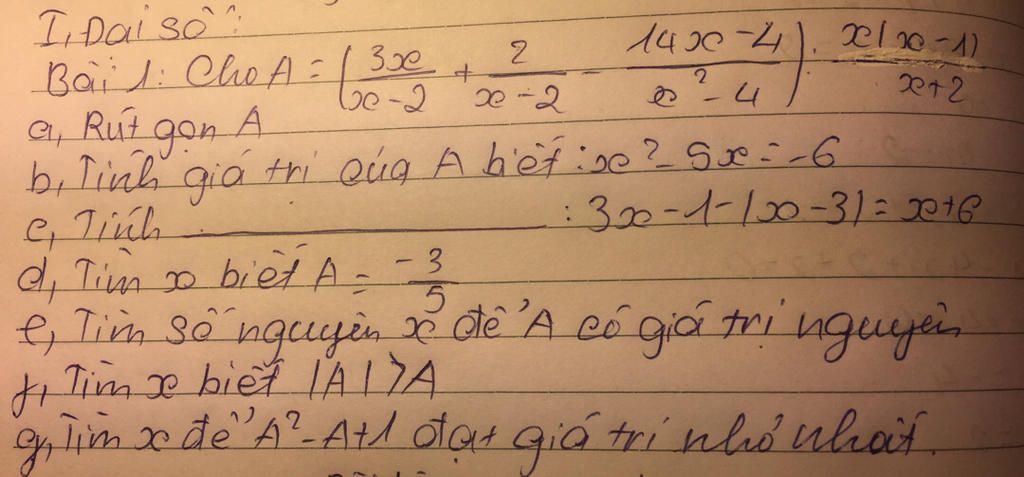 I, Đại số:
Bài 1: Cho A = (3x/(x-2) + 2/(x-2) - (14x-4)/(x²-4)) : x(x-1)/(x+2)
a, Rút gọn A
b, Tính giá trị của A biết: x² - 5x = -6
c, Tính ________ : 3x-1-(x-3) = x+6
d, Tìm x biết A = -3/5
e, Tìm số nguyên x để A có giá trị nguyên
f, Tìm x biết |A| > A
g, Tìm x để A² - A + 1 đạt giá trị nhỏ nhất.